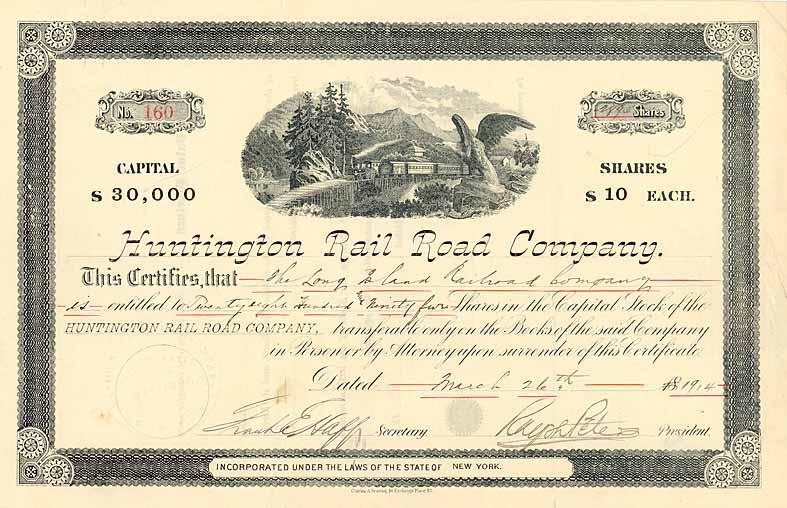 No. 160
Shares
CAPITAL
$ 30,000
SHARES
$ 10 EACH.
Huntington Rail Road Company.
This Certifies, that The Long Island Railroad Company
is entitled to Twenty eight Hundred & Ninety five Shares in the Capital Stock of the
HUNTINGTON RAIL ROAD COMPANY, transferable only on the Books of the said Company
in Person or by Attorney upon surrender of this Certificate.
Dated March 26th 1914
Secretary Ralph Peters President.
INCORPORATED UNDER THE LAWS OF THE STATE OF NEW YORK.